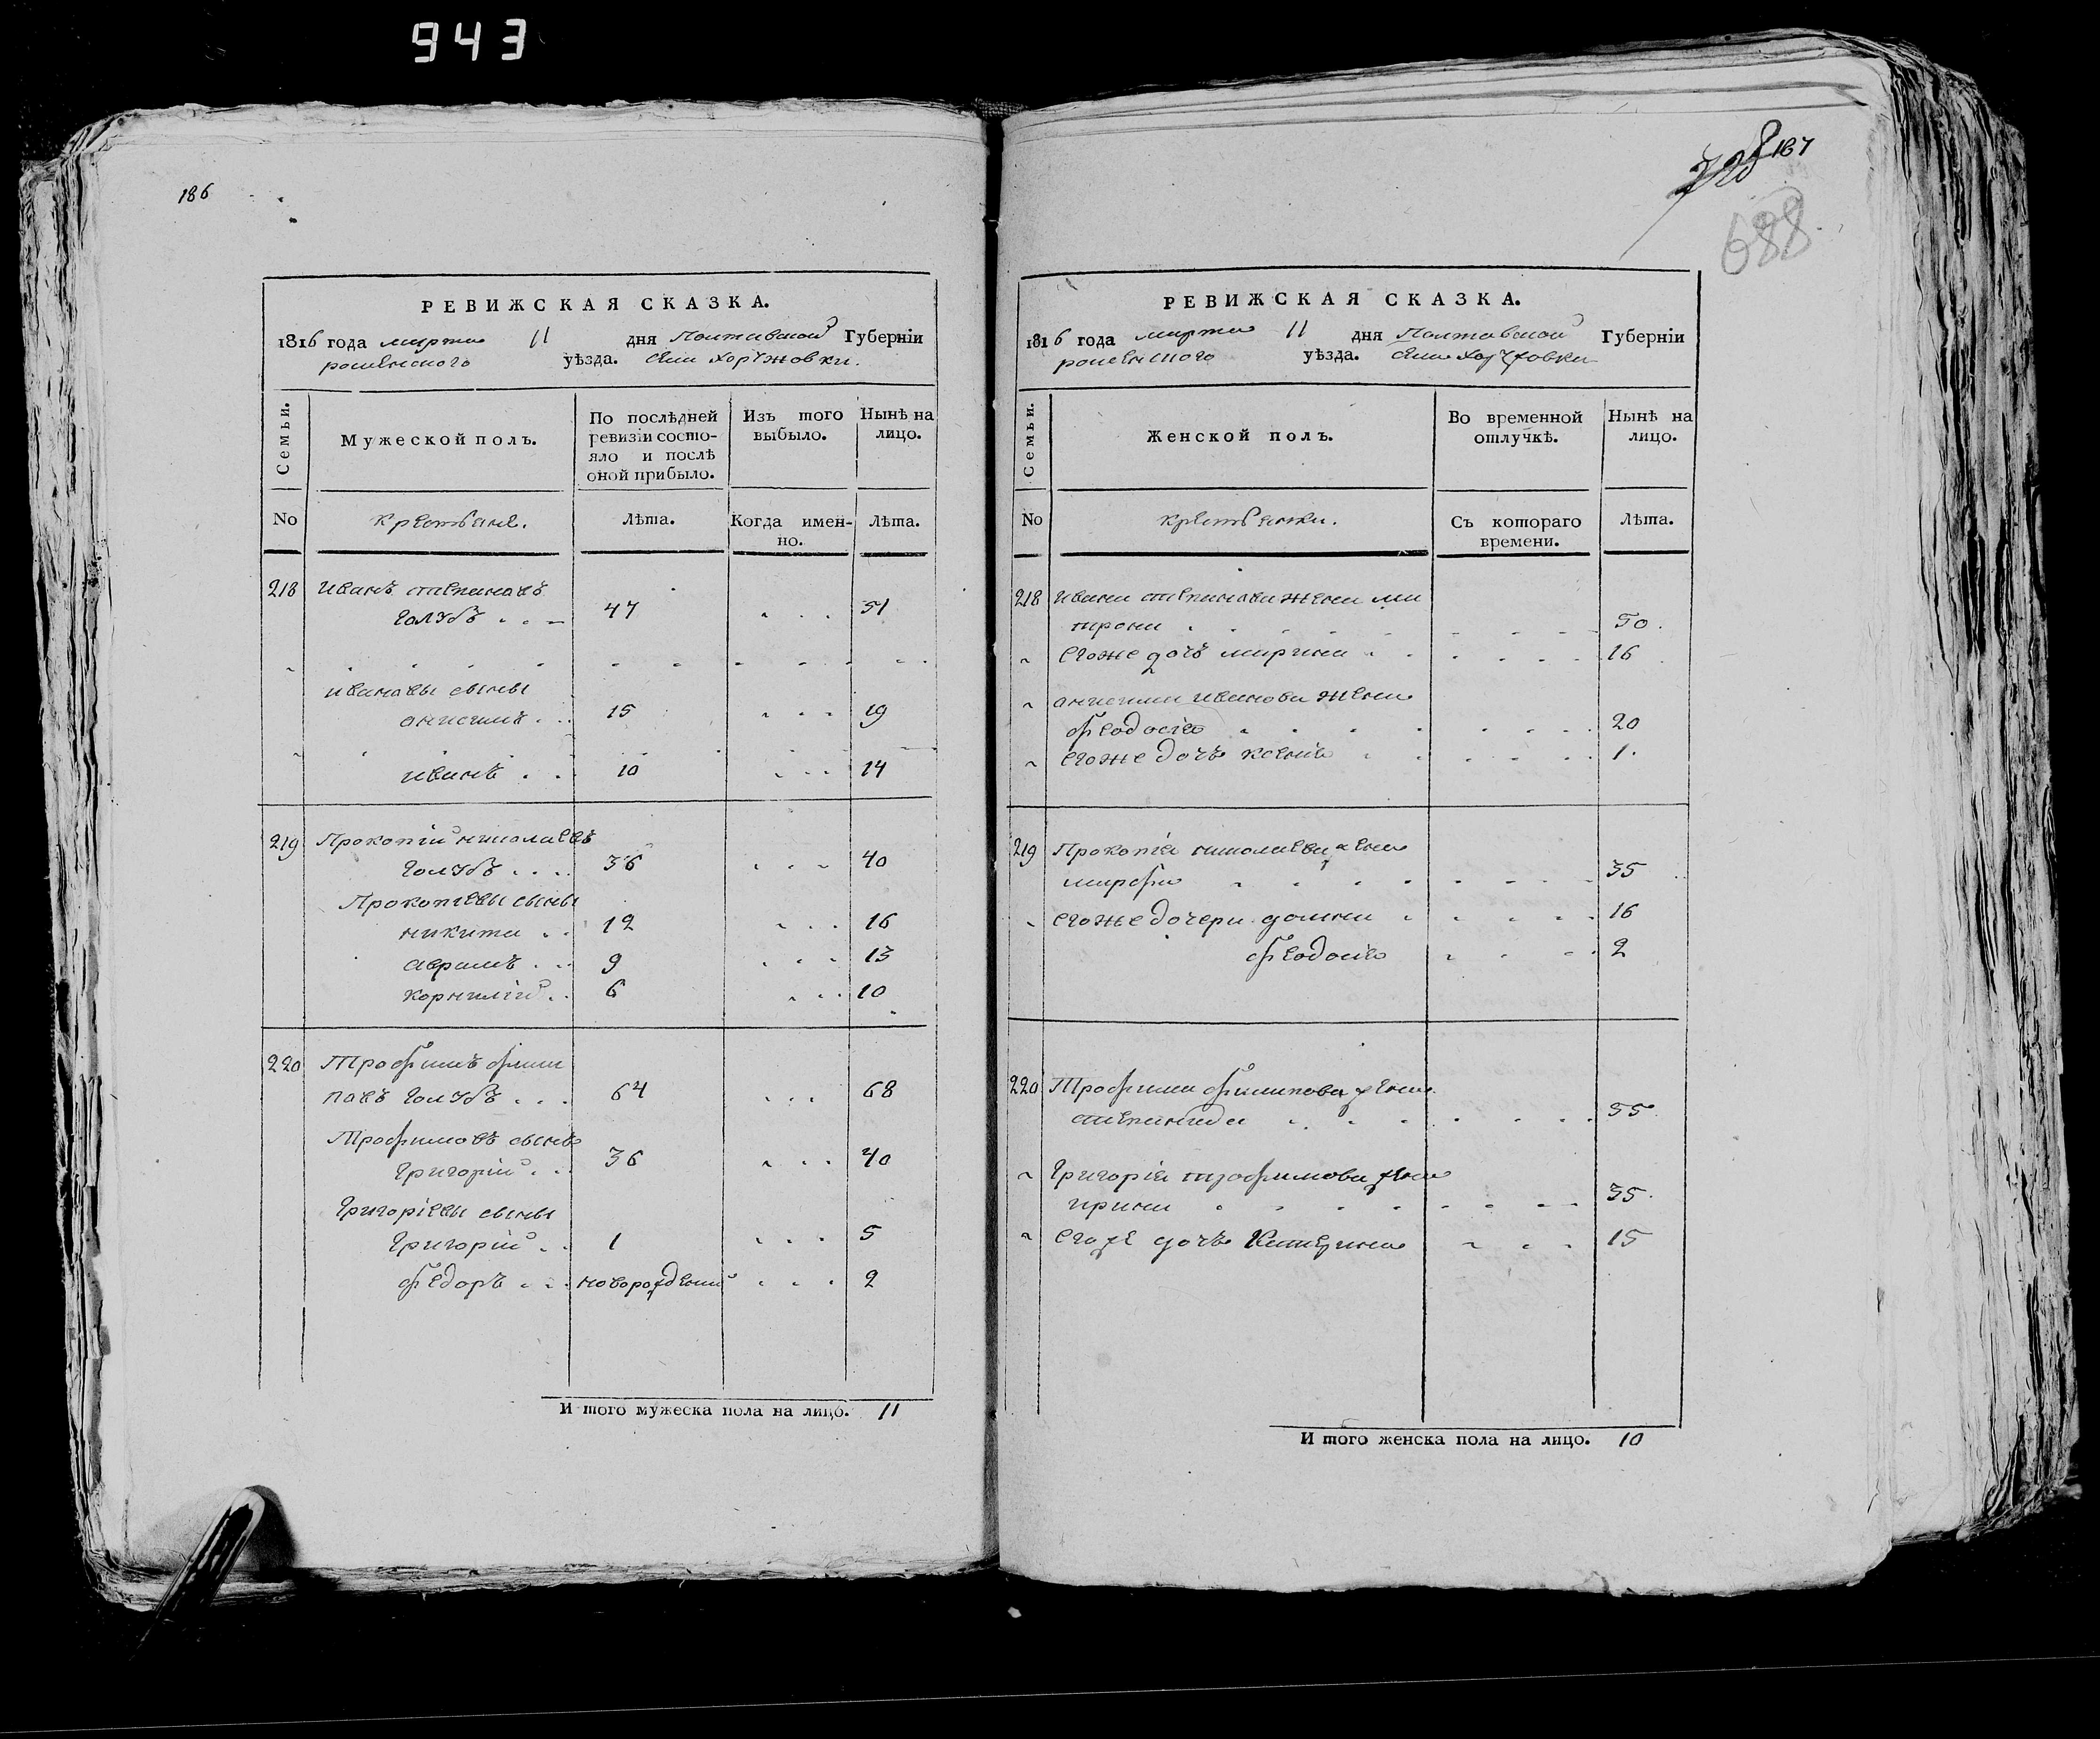 943
186
РЕВИЖСКАЯ СКАЗКА.
1816 года марта 11 дня Полтавской Губерніи
роменского уѣзда. села Хоружовки.
Семьи.
Мужеской полъ.
По послѣдней ревизіи состо-
яло и послѣ
оной прибыло.
Изъ того
выбыло.
Нынѣ на
лицо.
No
крестьяне.
Лѣта.
Когда имен-
но.
Лѣта.
218 Иванъ степановъ
Голубъ 47 51
ивановы сыны
анисимъ 15 19
иванъ 10 14
219 Прокопій николаевъ
Голубъ 36 40
Прокопіевы сыны
никита 12 16
аврамъ 9 13
корнилій 6 10
220 Трофимъ фили
повъ Голубъ 64 68
Трофимовъ сынъ
Григорій 36 40
Григоріевы сыны
Григорій 1 5
федоръ новорожденный 2
И того мужеска пола на лицо. 11
728 187
688
РЕВИЖСКАЯ СКАЗКА.
1816 года марта 11 дня Полтавской Губерніи
роменского уѣзда. села Хоружовки
Семьи.
Женской полъ.
Во временной
отлучкѣ.
Нынѣ на
лицо.
No
крестьянки.
Съ котораго
времени.
Лѣта.
218 Ивана степанова жена ма
трона 50.
егоже дочь марина 16
анисима иванова жена
феодосія 20
егоже дочь ксенія 1.
219 Прокопія николаева жена
марфа 35
егоже дочери домна 16
феодосія 2
220 Трофима филипова жена
степанида 55.
Григорія трофимова жена
ирина 35.
егоже дочь Катерина 15
И того женска пола на лицо. 10